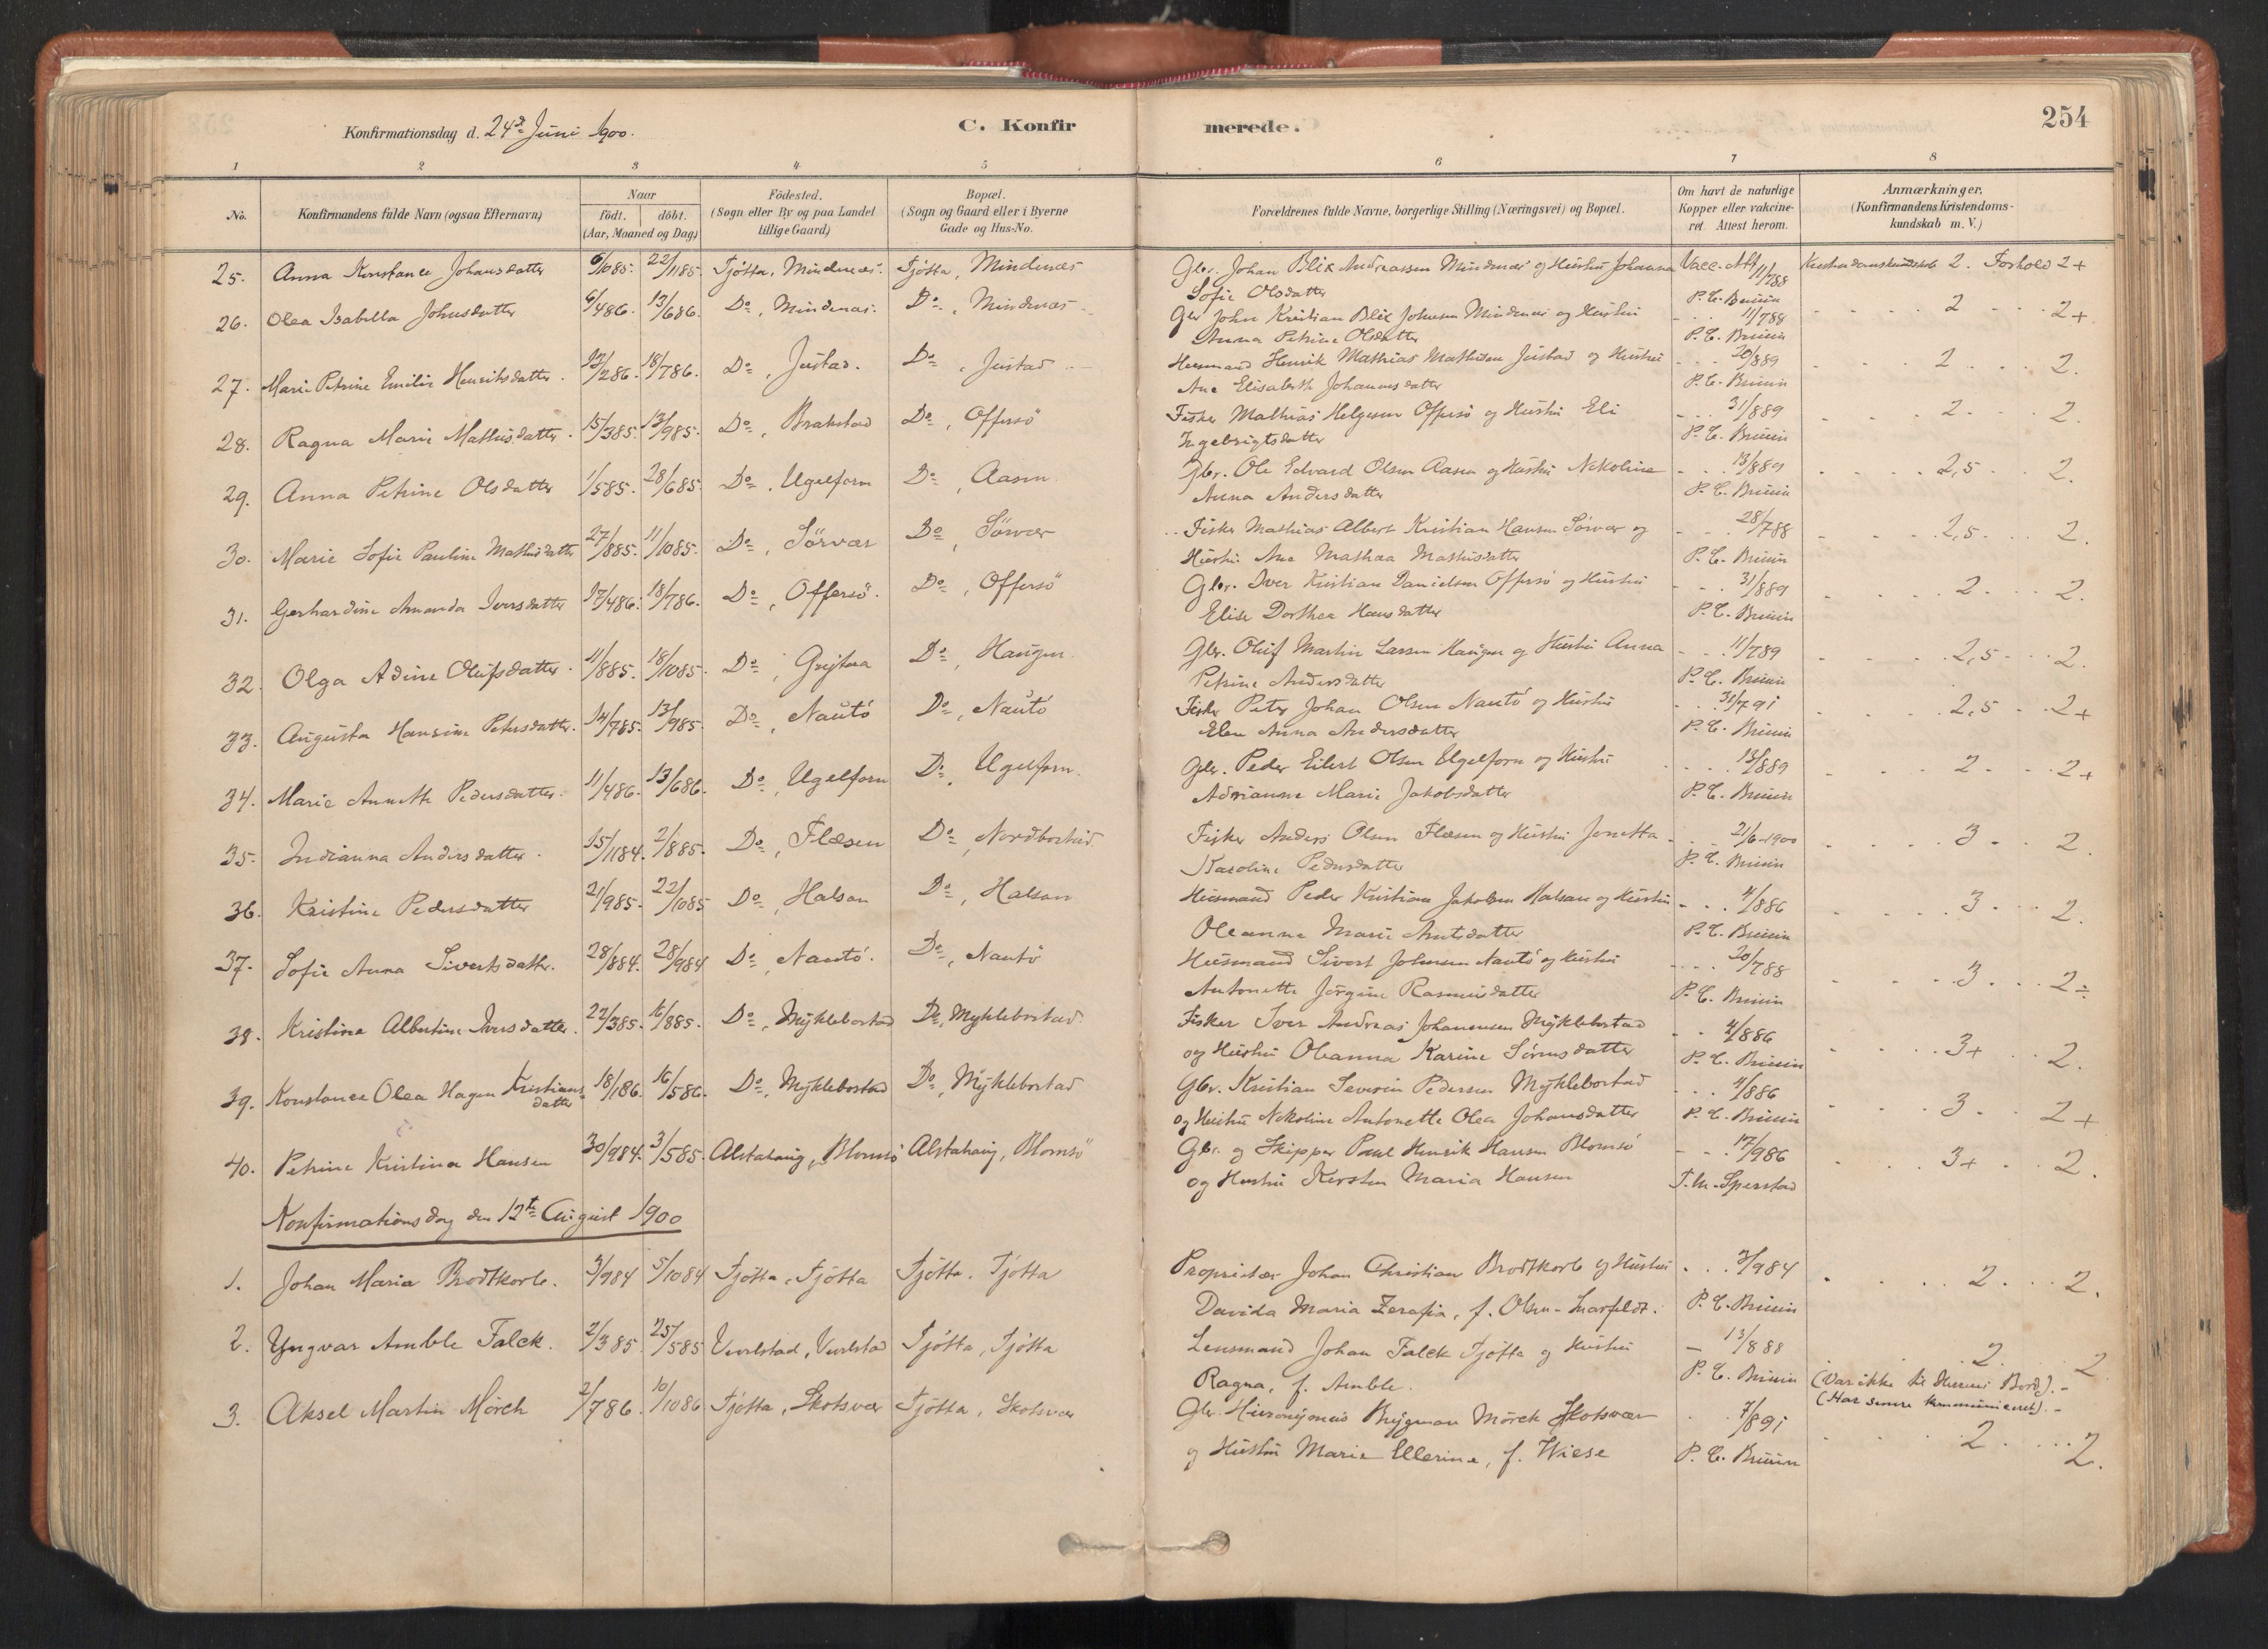 Konfirmationsdag d. 24de Juni 1900.
C. Konfirmerede.
254
1 2 3 4 5 6 7 8
No.
Konfirmandens fulde Navn (ogsaa Efternavn)
Naar
födt. döbt.
(Aar, Maaned og Dag)
Födested.
(Sogn eller By og paa Landet tillige Gaard)
Bopæl.
(Sogn og Gaard eller i Byerne Gade og Hus-No.
Forældrenes fulde Navne, borgerlige Stilling (Næringsvei) og Bopæl.
Om havt de naturlige Kopper eller vakcineret. Attest herom.
Anmærkninger.
(Konfirmandens Kristendomskundskab m. V.)
25. Anna Konstance Johansdatter 6/1085. 22/1185. Tjötta, Mindnæs. Tjötta, Mindnæs Gbr. Johan Blix Andreassen Mindnæs og Hustru Johanna Vacc. Att 11/788 Kristendomskundskab 2. Forhold 2+
Sofie Olsdatter P. C. Bruun
26. Olea Isabella Johnsdatter 6/486. 13/686. Do, Mindnæs. Do, Mindnæs Gbr John Kristian Blix Johnsen Mindnæs og Hustru 11/788 2 2+
Anna Petrine Olsdatter P. C. Bruun
27. Marie Petrine Emilie Henriksdatter. 12/286. 18/786. Do, Justad. Do, Justad Husmand Henrik Mathias Mathisen Justad og Hustru 20/889 2 2.
Ane Elisabeth Johannsdatter P. C. Bruun
28. Ragna Marie Mathisdatter. 15/385. 13/985. Do, Brakstad Do, Offersö Fisker Mathias Helgesen Offersö og Hustru Eli 31/889 2. 2.
Ingebrigtsdatter P. C. Bruun
29. Anna Petrine Olsdatter 1/585. 28/685. Do, Ugelforn Do, Aasen Gbr. Ole Edvard Olsen Aasen og Hustru Nekoline 13/889 2,5 2.
Anna Andersdatter P. C. Bruun
30. Marie Sofie Pauline Mathisdatter 27/885. 11/1085. Do, Sörvær Do, Sörvær Fisker Mathias Albert Kristian Hansen Sörvær og 28/788 2,5 2.
Hustru Ane Mathea Mathisdatter P. C. Bruun
31. Gerhardine Amanda Iversdatter 17/486. 18/786. Do, Offersö. Do, Offersö Gbr. Iver Kristian Danielsen Offersö og Hustru 31/889 2 2.
Elise Dorthea Hansdatter P. C. Bruun
32. Olga Adine Olufsdatter. 11/885. 18/1085. Do, Do, Haugen Gbr. Oluf Martin Larsen Haugen og Hustru Anna 11/789 2,5 2.
Petrine Andersdatter P. C. Bruun
33. Augusta Hansine Petersdatter. 14/785. 13/985. Do, Nautö Do, Nautö Fisker Peter Johan Olsen Nautö og Hustru 31/791 2,5 2+
Elen Anna Andersdatter P. C. Bruun
34. Marie Annette Pedersdatter. 11/486. 13/686. Do, Ugelforn Do, Ugelforn. Gbr. Peder Eilert Olsen Ugelforn og Hustru 13/889 2 2+
Adrianne Marie Jakobsdatter P. C. Bruun
35. Indianna Andersdatter. 15/1184. 2/885. Do, Flæsen Do, Nordbostad Fisker Anders Olsen Flæsen og Hustru Jonetta 21/6-1900 3 2.
Karoline Pedersdatter P. C. Bruun
36. Kristine Pedersdatter 21/985. 22/1085 Do, Halsan Do, Halsan Husmand Peder Kristian Jakobsen Halsan og Hustru 4/886 3 2.
Oleanna Marie Arntsdatter P. C. Bruun
37. Sofie Anna Sivertsdatter. 28/884. 28/984 Do, Nautö. Do, Nautö Husmand Sivert Johnsen Nautö og Hustru 20/788 3 2÷
Antonette Jörgine Rasmusdatter P. C. Bruun
38. Kristina Albertine Iversdatter. 22/385. 16/885. Do, Myklebostad Do, Myklebostad. Fisker Iver Andreas Johannesen Myklebostad 4/886 3+ 2.
og Hustru Oleanna Karine Sörensdatter P. C. Bruun
39. Konstance Olea Hagen Kristiansdatter 18/186. 16/586. Do, Myklebostad Do, Myklebostad Gbr. Kristian Severin Pedersen Myklebostad 4/886 3 2+
og Hustru Nekoline Antonette Olea Johansdatter P. C. Bruun
40. Petrine Kristina Hansen 30/984. 3/585. Alstahaug, Blomsö Alstahaug, Blomsö Gbr. og Skipper Paul Henrik Hansen Blomsö 17/986 3+ 2.
og Hustru Kersten Maria Hansen T. M. Sperstad
Konfirmationsdag den 12te August 1900
1. Johan Maria Brodtkorb. 3/984 5/1084 Tjötta, Tjötta Tjötta, Tjötta Proprietær Johan Christian Brodtkorb og Hustru 3/984 2 2.
Davida Maria Zerafia, f. Olsen- P. C. Bruun
2. Yngvar Amble Falck. 2/385 25/585 Vevelstad, Vevelstad Tjötta, Tjötta Lensmand Johan Falck Tjötta og Hustru 13/888 2 2
Ragna, f. Amble. P. C. Bruun (Var ikke til Herrens Bord). -
(Har senere kommuniceret). -
3. Aksel Martin Mörch 2/786. 10/1086 Tjötta, Skotsvær Tjötta, Skotsvær Gbr. Hieronymus Brygman Mörch Skotsvær 7/891 2 2.
og Hustru Marie Ellerine, f. Wiese P. C. Bruun